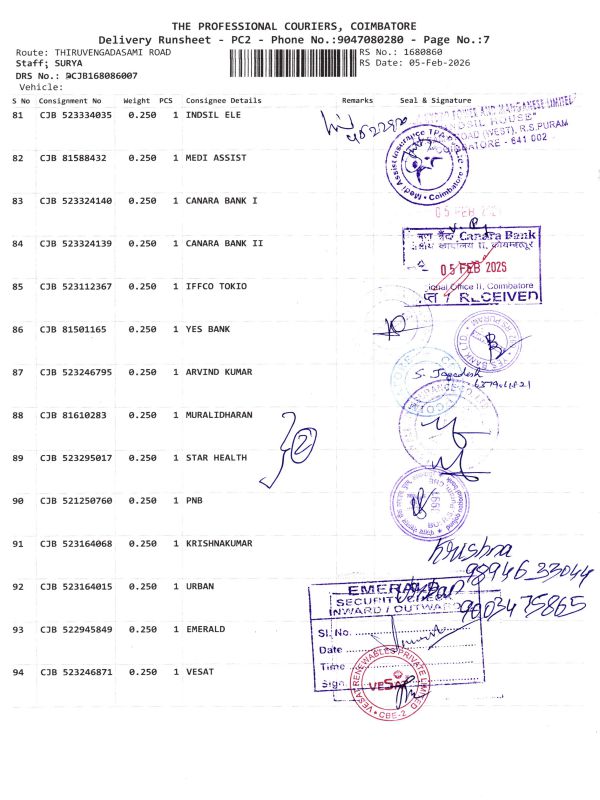 THE PROFESSIONAL COURIERS, COIMBATORE
Delivery Runsheet - PC2 - Phone No.:9047080280 - Page No.:7
Route: THIRUVENGADASAMI ROAD RS No.: 1680860
Staff: SURYA RS Date: 05-Feb-2026
DRS No.: DCJB168086007
Vehicle:
S No Consignment No Weight PCS Consignee Details Remarks Seal & Signature
81 CJB 523334035 0.250 1 INDSIL ELE
"INDSIL HOUSE"
ROAD (WEST), R.S.PURAM
COIMBATORE - 641 002
82 CJB 81588432 0.250 1 MEDI ASSIST
Medi Assist Insurance TPA Coimbatore
83 CJB 523324140 0.250 1 CANARA BANK I
05 FEB
84 CJB 523324139 0.250 1 CANARA BANK II
Canara Bank
05 FEB 2026
85 CJB 523112367 0.250 1 IFFCO TOKIO
Office II, Coimbatore
RECEIVED
86 CJB 81501165 0.250 1 YES BANK
YES BANK LTD
87 CJB 523246795 0.250 1 ARVIND KUMAR
S. Jagadesh
88 CJB 81610283 0.250 1 MURALIDHARAN
2
89 CJB 523295017 0.250 1 STAR HEALTH
90 CJB 521250760 0.250 1 PNB
91 CJB 523164068 0.250 1 KRISHNAKUMAR
Krishna
98946 33044
92 CJB 523164015 0.250 1 URBAN
EMERALD
SECURITY
INWARD / OUTWARD
9003475865
93 CJB 522945849 0.250 1 EMERALD
Sl. No.
Date
94 CJB 523246871 0.250 1 VESAT
Time
Sign.
VESAT RENEWABLES PRIVATE LIMITED
VESAT
CBE-2